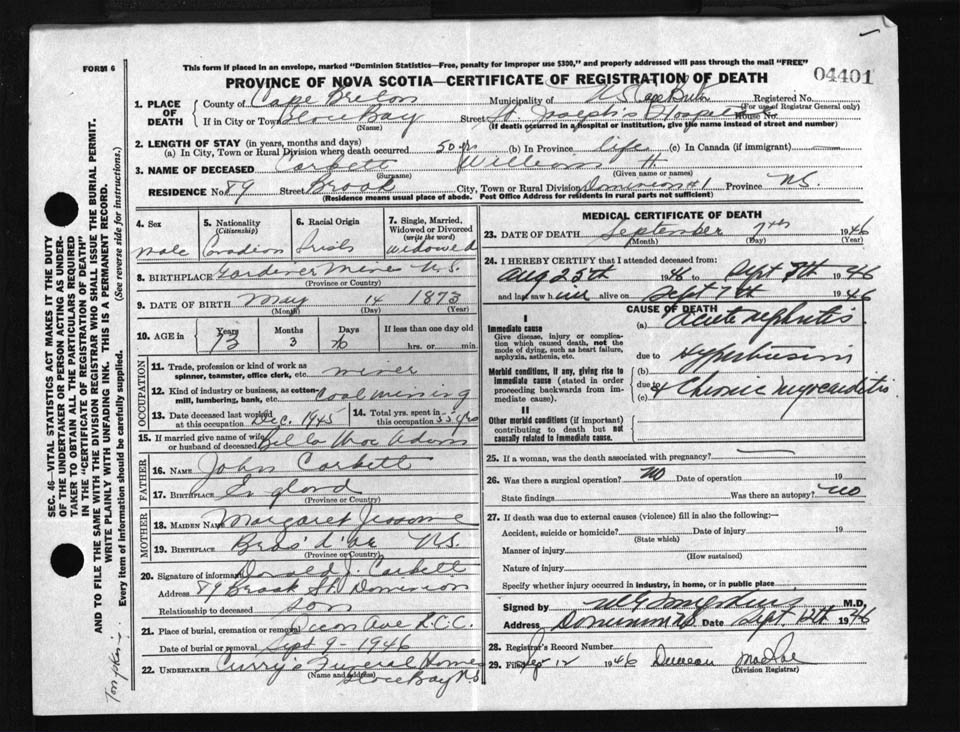 This form if placed in an envelope, marked "Dominion Statistics—Free, penalty for improper use $300," and properly addressed will pass through the mail "FREE"
FORM 6
PROVINCE OF NOVA SCOTIA—CERTIFICATE OF REGISTRATION OF DEATH
04401
1. PLACE OF DEATH
County of Cape Breton Municipality of Registered No.
(For use of Registrar General only)
If in City or Town Glace Bay Street St. Joseph's Hospital House No.
(Name) (If death occurred in a hospital or institution, give the name instead of street and number)
2. LENGTH OF STAY (in years, months and days)
(a) In City, Town or Rural Division where death occurred 50 yrs (b) In Province life (c) In Canada (if immigrant) —
3. NAME OF DECEASED Corbett William H
(Surname) (Given name or names)
RESIDENCE No. 89 Street Brook City, Town or Rural Division Dominion #1 Province N.S.
(Residence means usual place of abode. Post Office Address for residents in rural parts not sufficient)
4. Sex Male
5. Nationality (Citizenship) Canadian
6. Racial Origin Irish
7. Single, Married, Widowed or Divorced (write the word) Widowed
8. BIRTHPLACE Gardener Mines N.S.
(Province or Country)
9. DATE OF BIRTH May 14 1873
(Month) (Day) (Year)
10. AGE in Years 73 Months 3 Days If less than one day old hrs. or min.
OCCUPATION
11. Trade, profession or kind of work as spinner, teamster, office clerk, etc. miner
12. Kind of industry or business, as cotton-mill, lumbering, bank, etc. Coal mining
13. Date deceased last worked at this occupation Dec. 1945
14. Total yrs. spent in this occupation 55 yrs
15. If married give name of wife or husband of deceased Bella
FATHER
16. Name John Corbett
17. Birthplace England
(Province or Country)
MOTHER
18. Maiden Name Margaret Jessome
19. Birthplace Bras d'or N.S.
(Province or Country)
20. Signature of informant Donald J. Corbett
Address 89 Brook St. Dominion
Relationship to deceased son
21. Place of burial, cremation or removal
Date of burial or removal Sept 9 - 1946
22. UNDERTAKER Curry's Funeral Home
(Name and address) Glace Bay N.S.
MEDICAL CERTIFICATE OF DEATH
23. DATE OF DEATH September 7th 1946
(Month) (Day) (Year)
24. I HEREBY CERTIFY that I attended deceased from:
Aug 25th 1946 to Sept 7th 1946
and last saw him alive on Sept 7th 1946
CAUSE OF DEATH
I
Immediate cause
Give disease, injury or complication which caused death, not the mode of dying, such as heart failure, asphyxia, asthenia, etc.
(a) Acute nephritis
due to
Morbid conditions, if any, giving rise to immediate cause (stated in order proceeding backwards from immediate cause).
(b) Hypertension
due to
(c) & Chronic myocarditis
II
Other morbid conditions (if important) contributing to death but not causally related to immediate cause.
25. If a woman, was the death associated with pregnancy? —
26. Was there a surgical operation? no Date of operation 19
State findings Was there an autopsy? no
27. If death was due to external causes (violence) fill in also the following:—
Accident, suicide or homicide? Date of injury 19
(State which)
Manner of injury
(How sustained)
Nature of injury
Specify whether injury occurred in industry, in home, or in public place
Signed by M.D.
Address Dominion N.S. Date Sept. 12th 1946
28. Registrar's Record Number
29. Filed Sept 12 1946 Duncan MacRae
(Division Registrar)
SEC. 46—VITAL STATISTICS ACT MAKES IT THE DUTY OF THE UNDERTAKER OR PERSON ACTING AS UNDERTAKER TO OBTAIN ALL THE PARTICULARS REQUIRED IN THE "CERTIFICATE OF REGISTRATION OF DEATH" AND TO FILE THE SAME WITH THE DIVISION REGISTRAR WHO SHALL ISSUE THE BURIAL PERMIT.
WRITE PLAINLY WITH UNFADING INK. THIS IS A PERMANENT RECORD.
Every item of information should be carefully supplied. (See reverse side for instructions.)